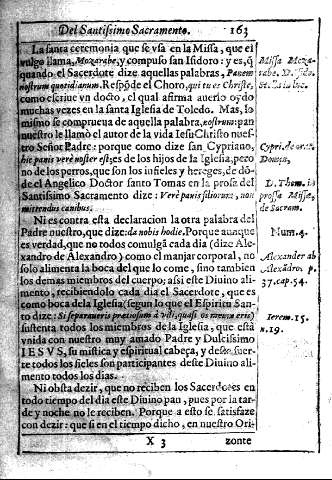 Del Santissimo Sacramento. 163
La santa ceremonia que se vsa en la Missa, que el
vulgo llama, Mozarabe, y compuso san Isidoro: y es, q̃
quando el Sacerdote dize aquellas palabras, Panem
nostrum quotidianum. Respõde el Choro, qui tu es Christe,
como escriue vn docto, el qual afirma auerlo oydo
muchas vezes en la santa Iglesia de Toledo. Mas, lo
mismo se comprueua de aquella palabra, nostrum: pan
nuestro le llamò el autor de la vida Iesu Christo nues-
tro Señor Padre: porque como dize san Cypriano,
hic panis verè noster est, es de los hijos de la Iglesia, pero
no de los perros, que son los infieles y hereges, de dõ-
de el Angelico Doctor santo Tomas en la prosa del
Santissimo Sacramento dize: Verè panis filiorum, non
mittendus canibus.
Ni es contra esta declaracion la otra palabra del
Padre nuestro, que dize: da nobis hodie. Porque aunque
es verdad, que no todos comulgã cada dia (dize Ale-
xandro de Alexandro) como el manjar corporal, no
solo alimenta la boca del que lo come, sino tambien
los demas miembros del cuerpo; assi este Diuino ali-
mento, recibiendolo cada dia el Sacerdote, que es
como boca de la Iglesia (segun lo que el Espiritu San-
to dize: Si separaueris pretiosum à vili, quasi os meum eris)
sustenta todos los miembros de la Iglesia, que està
vnida con nuestro muy amado Padre y Dulcissimo
IESVS, su mistica y espiritual cabeça, y desta suer-
te todos los fieles son participantes deste Diuino ali-
mento todos los dias.
Ni obsta dezir, que no reciben los Sacerdotes en
todo tiempo del dia este Diuino pan, pues por la tar-
de y noche no le reciben. Porque a esto se satisfaze
con dezir: que si en el tiempo dicho, en nuestro Ori-
X 3 zonte
Missa Moza-
rabe. D.
Cypri. de orat.
Domin.
D. Thom. in
prossa Missæ,
de Sacram.
Num. 4.
Alexander ab
Alexãdro. p.
37. cap. 54.
Ierem. 15.
n. 19.